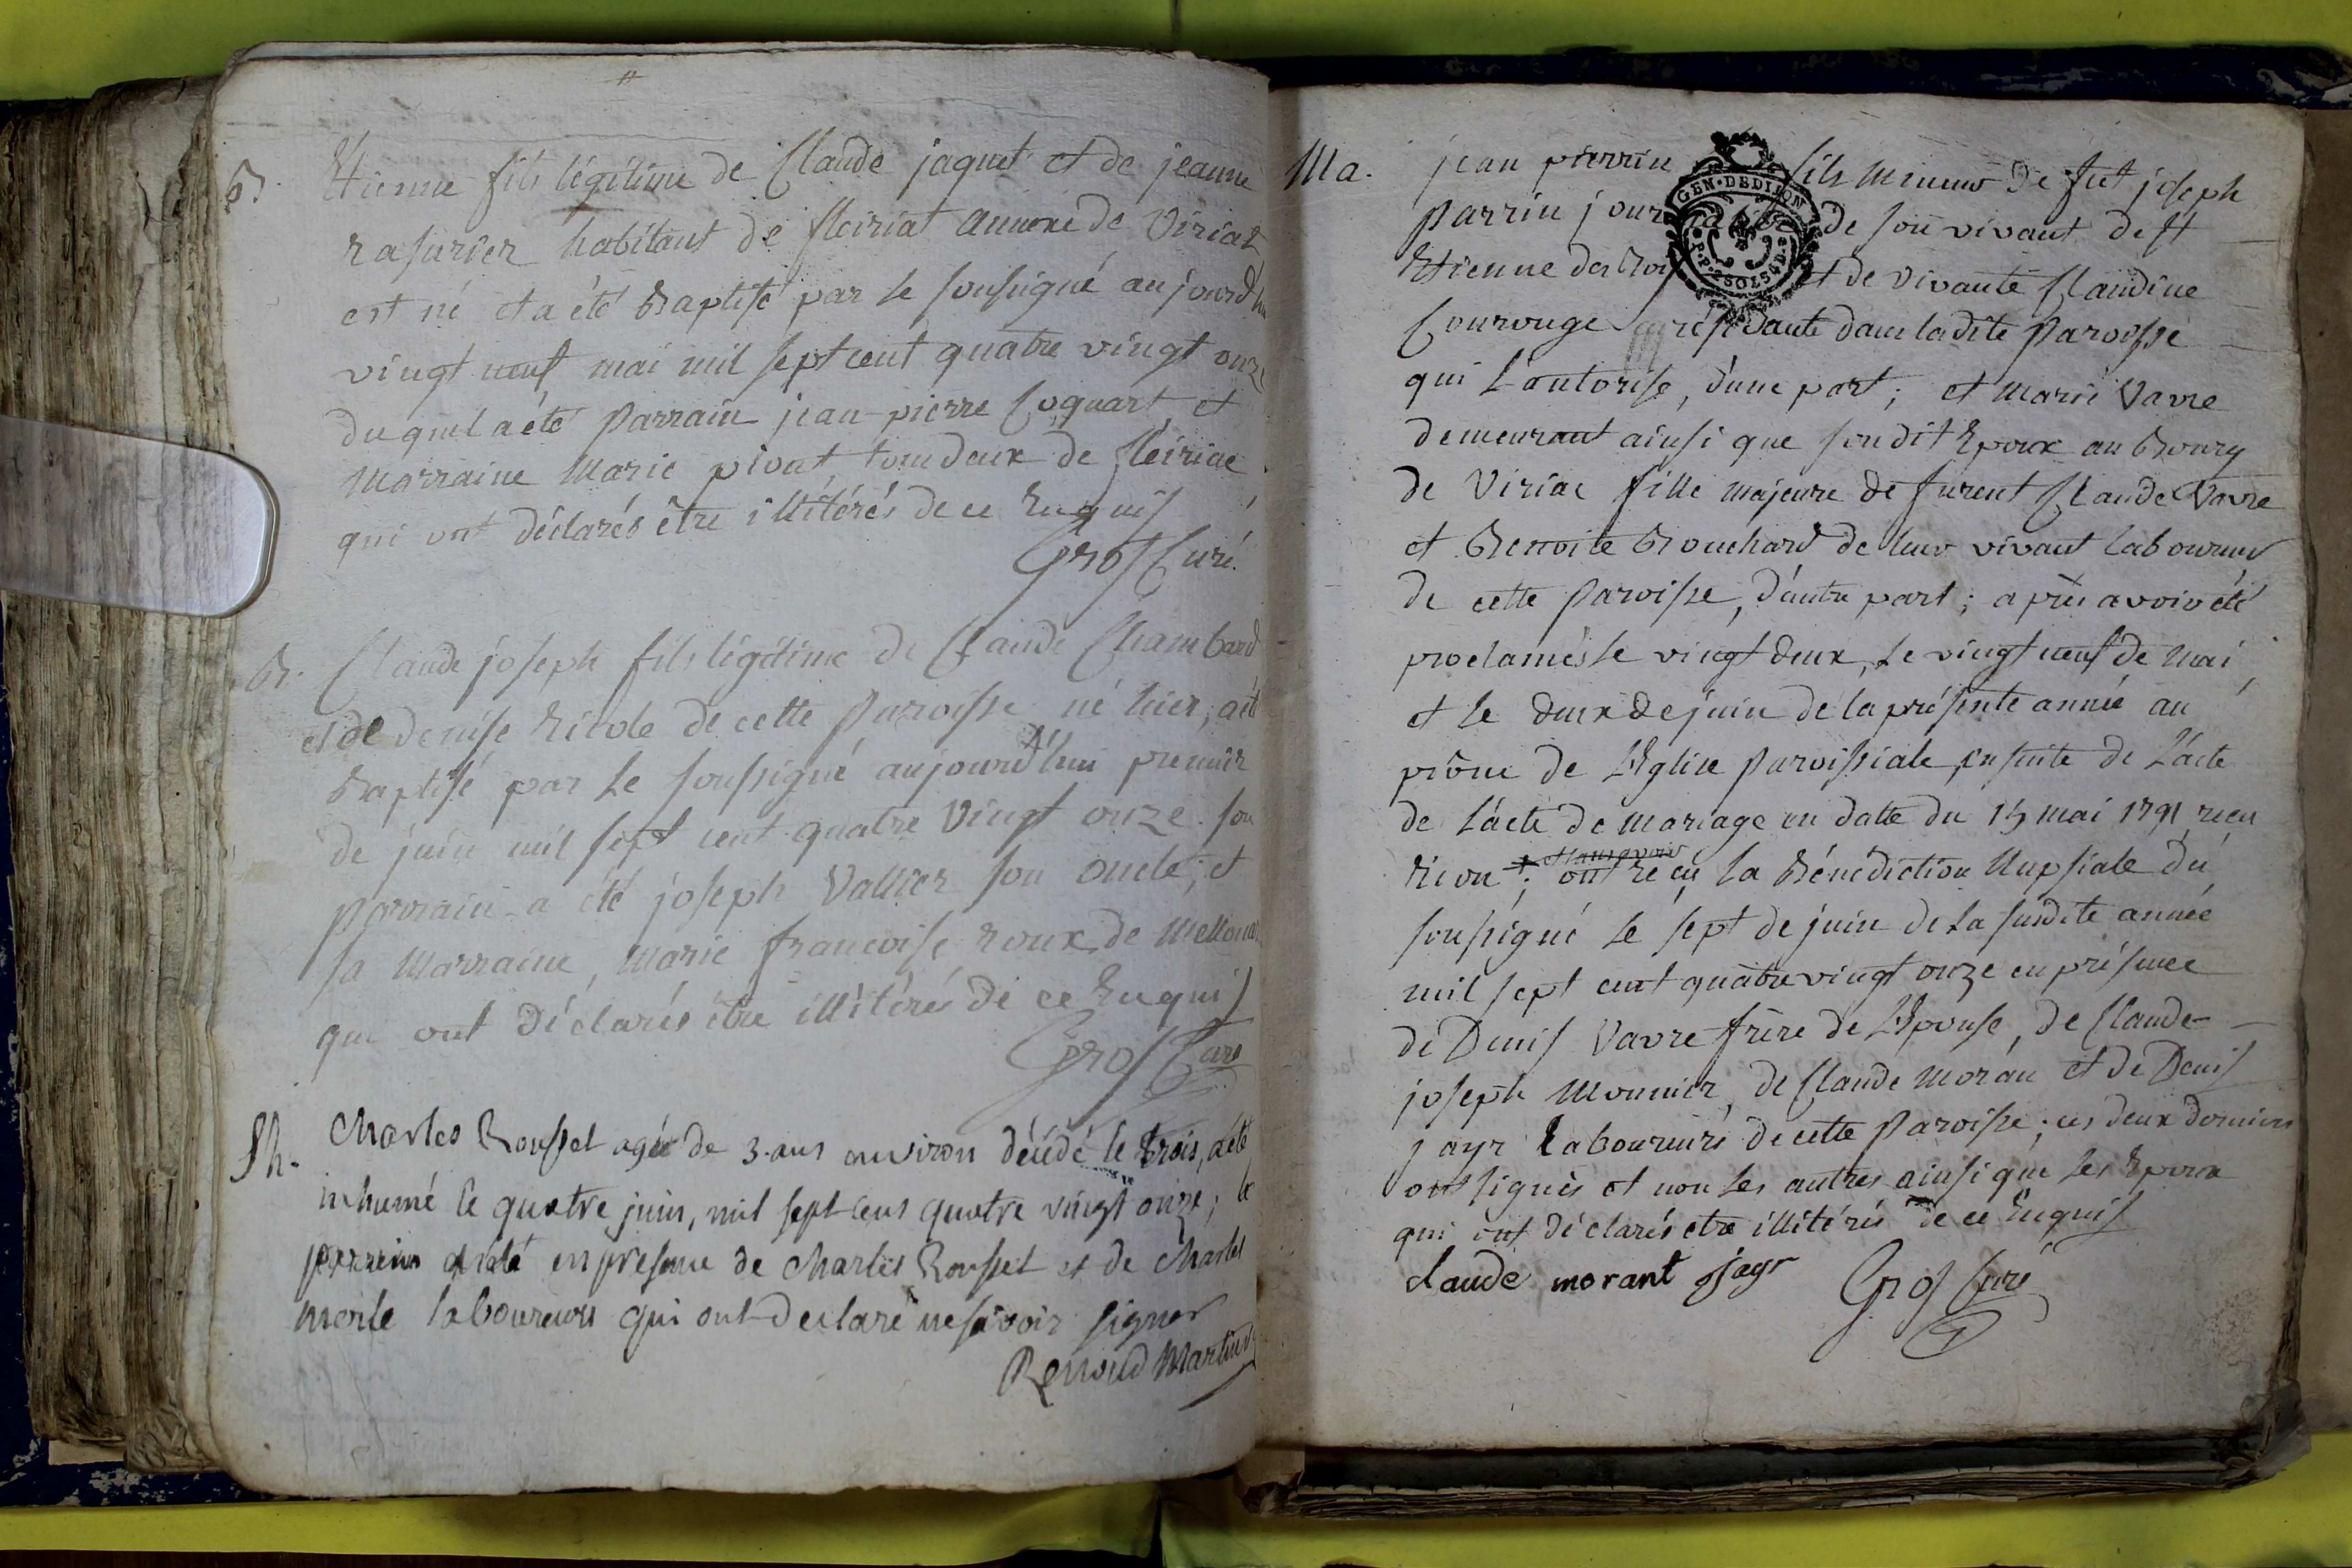 B.
Etienne fils légitime de Claude jaquet et de jeanne
rasurier habitant de fleiriat annexe de Viriat
est né et a été Baptisé par le soussigné aujourd'hui
vingt neuf mai mil sept cent quatre vingt onze
duquel a été Parrain jean-pierre Coquart et
Marraine Marie pivat tous deux de fleiriac
qui ont déclarés être illitérés de ce Enquis
Gros Curé.
B.
Claude joseph fils légitime de Claude Chambard
et de denise Ricole de cette Paroisse né hier, a été
Baptisé par le soussigné aujourd'hui premier
de juin mil sept cent quatre Vingt onze. son
Parrain a été joseph Vallier son oncle, et
sa Marraine, Marie francoise roux de
qui ont Déclarés être illitérés de ce Enquis
Gros Curé
Sh.
Charles Rousset agée de 3. ans environ décédé le trois, a été
inhumé le quatre juin, mil sept cens quatre vingt onze; le
en presence de Charles Rousset et de Charles
laboureurs qui ont declaré ne savoir signer
Renoud Martin
Ma.
jean pierrin fils Mineur de fut joseph
Parrin jour de son vivant de St
Etienne des Boi et de vivante Claudine
Courouge residante dans ladite Paroisse
qui L'autorise, d'une part; et Marie Vavre
demeurant ainsi que son dit Epoux au Bourg
de Viriac fille majeure de furent Claude Vavre
et Benoite Bouchard de leur vivant laboureur
de cette Paroisse, d'autre part; après avoir été
proclamés le vingt deux, le vingt neuf de Mai,
et le deux de juin de la présente année au
prône de L'Eglise Paroissiale ensuite de L'acte
de L'acte de Mariage en datte du 15 mai 1791 recu
; ont reçu la Bénédiction Nupsiale du
soussigné le sept de juin de la susdite année
mil sept cent quatre vingt onze en présence
de Denis Vavre frère de L'Epouse, de Claude-
joseph Monnier, de Claude Moran et de Denis
jayr Laboureurs de cette Paroisse; ces deux derniers
ont signés et non les autres ainsi que les Epoux
qui ont déclarés etre illitérés de ce Enquis
claude morant jayr Gros Curé
GEN·DEDIJON
P·P·2SOLS4D·